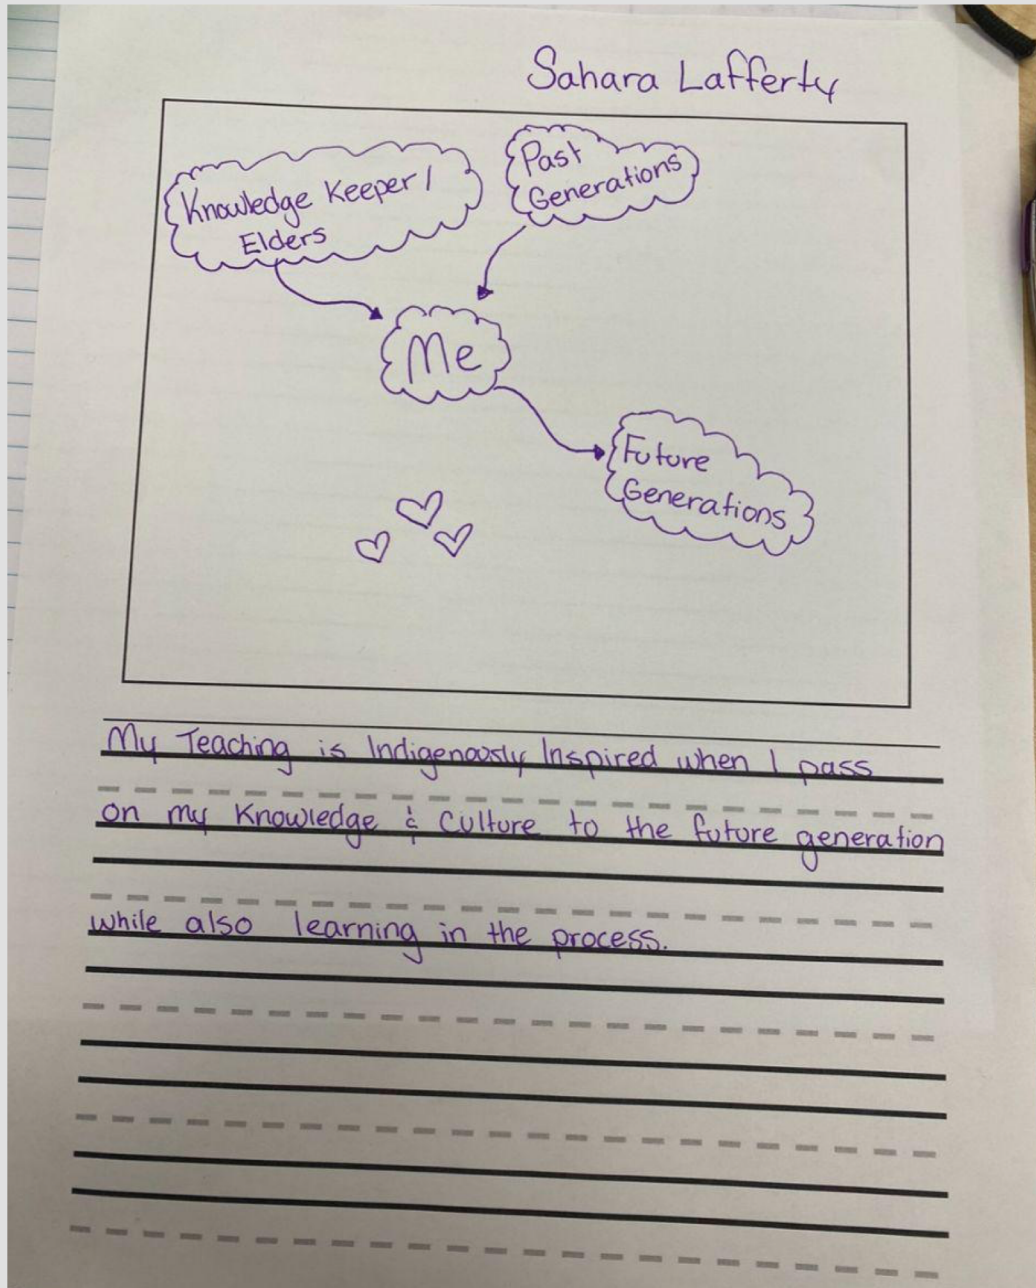 Sahara Lafferty
Knowledge Keeper /
Elders
Past
Generations
Me
Future
Generations
My Teaching is Indigenously Inspired when I pass
on my Knowledge & Culture to the future generation
while also learning in the process.